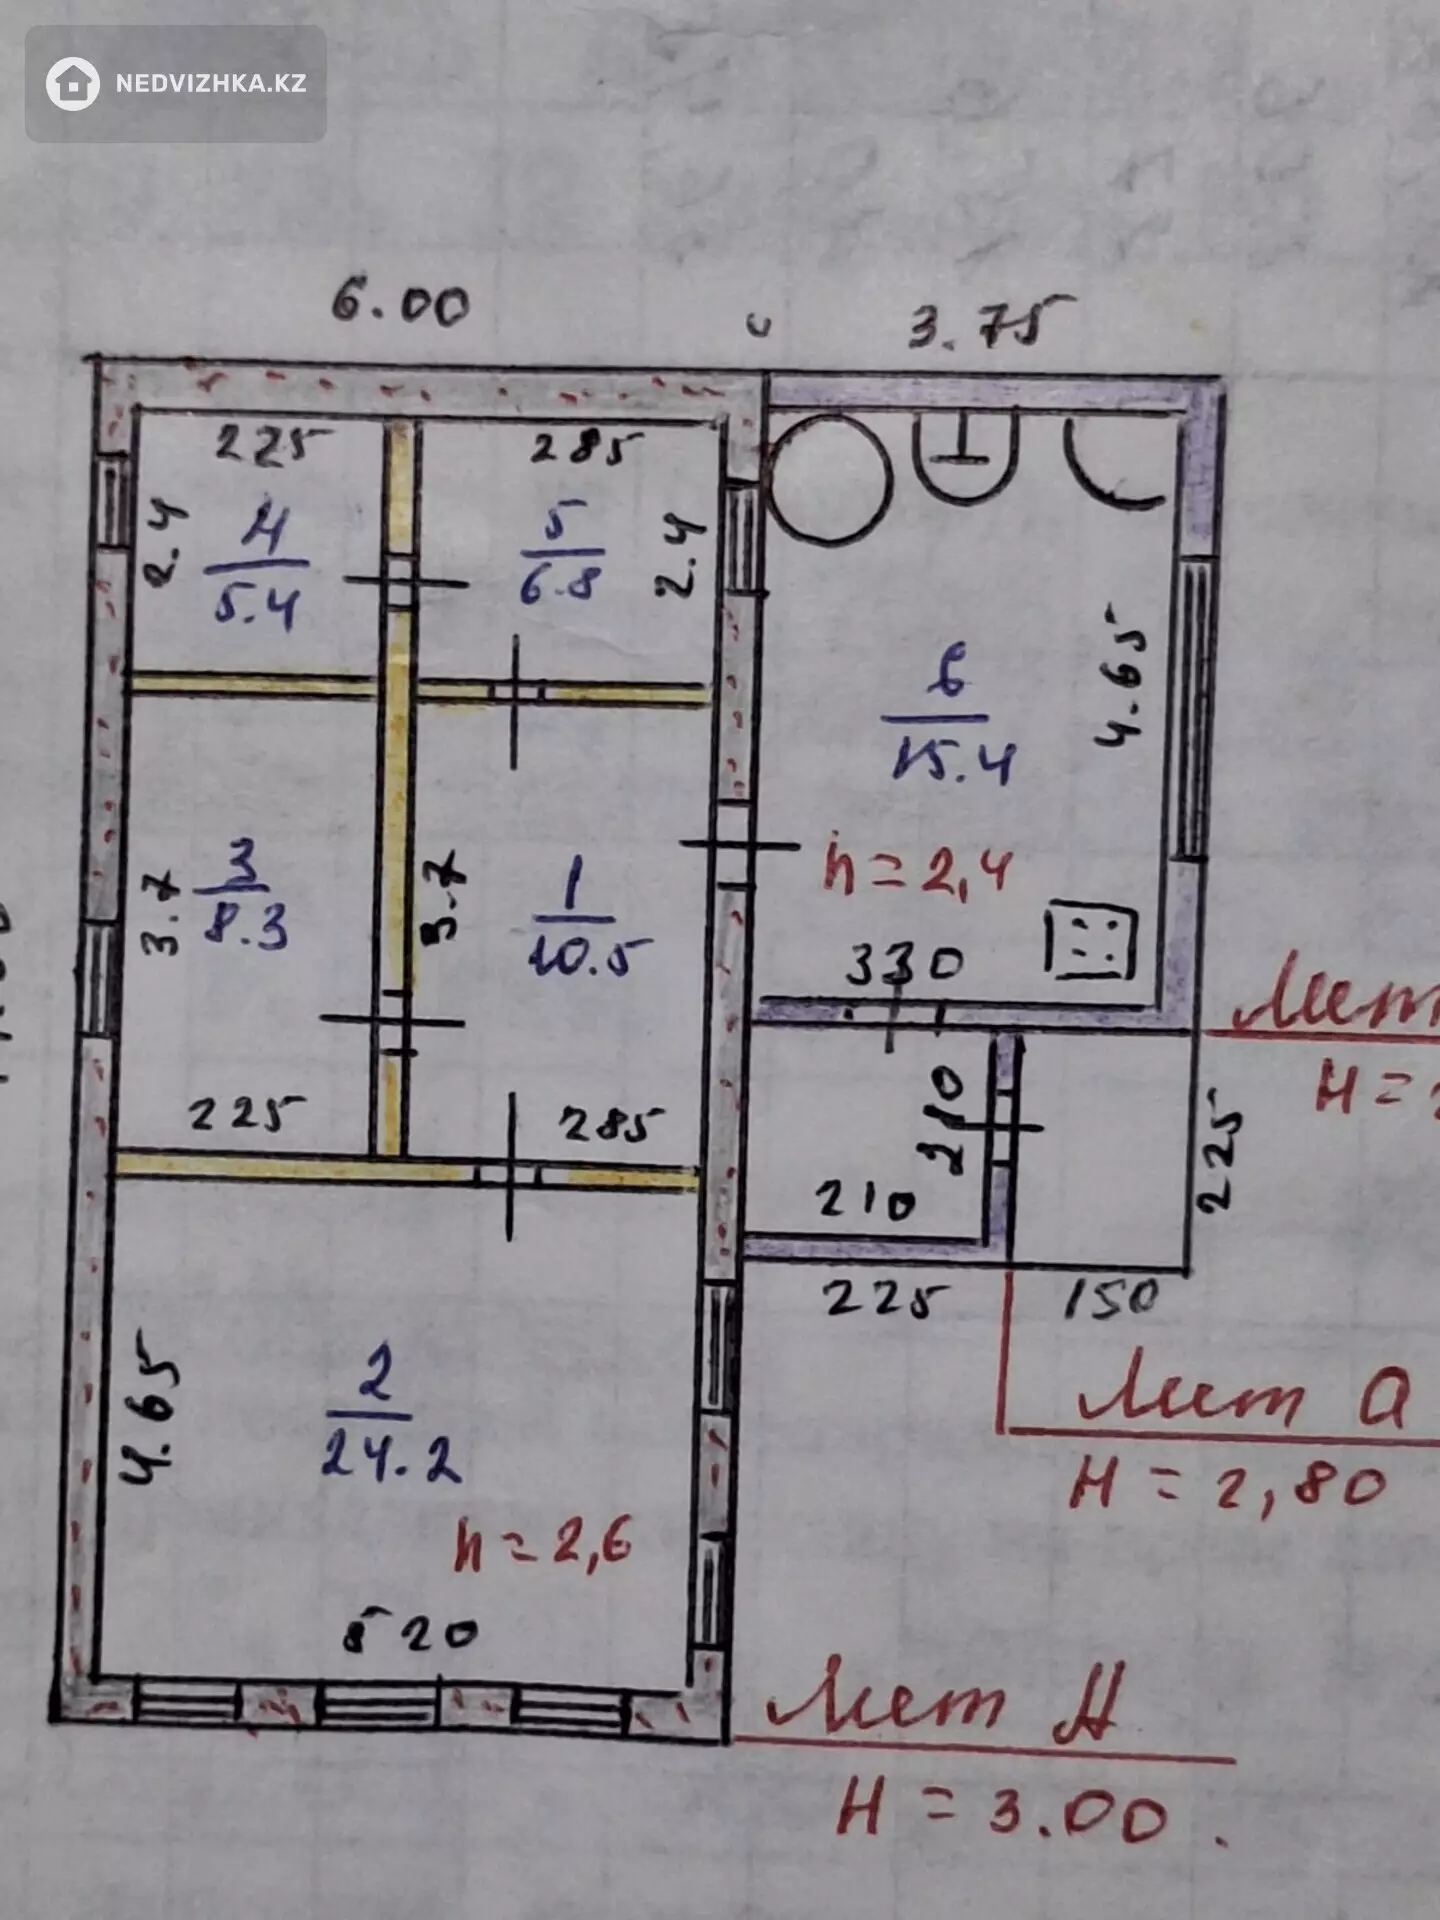 NEDVIZHKA.KZ
6.00
3.75
225
285
2.4
4
5.4
5
6.8
2.4
6
15.4
4.65
h=2,4
3.7
3
8.3
3.7
1
10.5
330
225
285
210
210
225
225
150
Лит
H=
4.65
2
24.2
h=2,6
520
Лит а
H=2,80
Лит А
H=3.00.